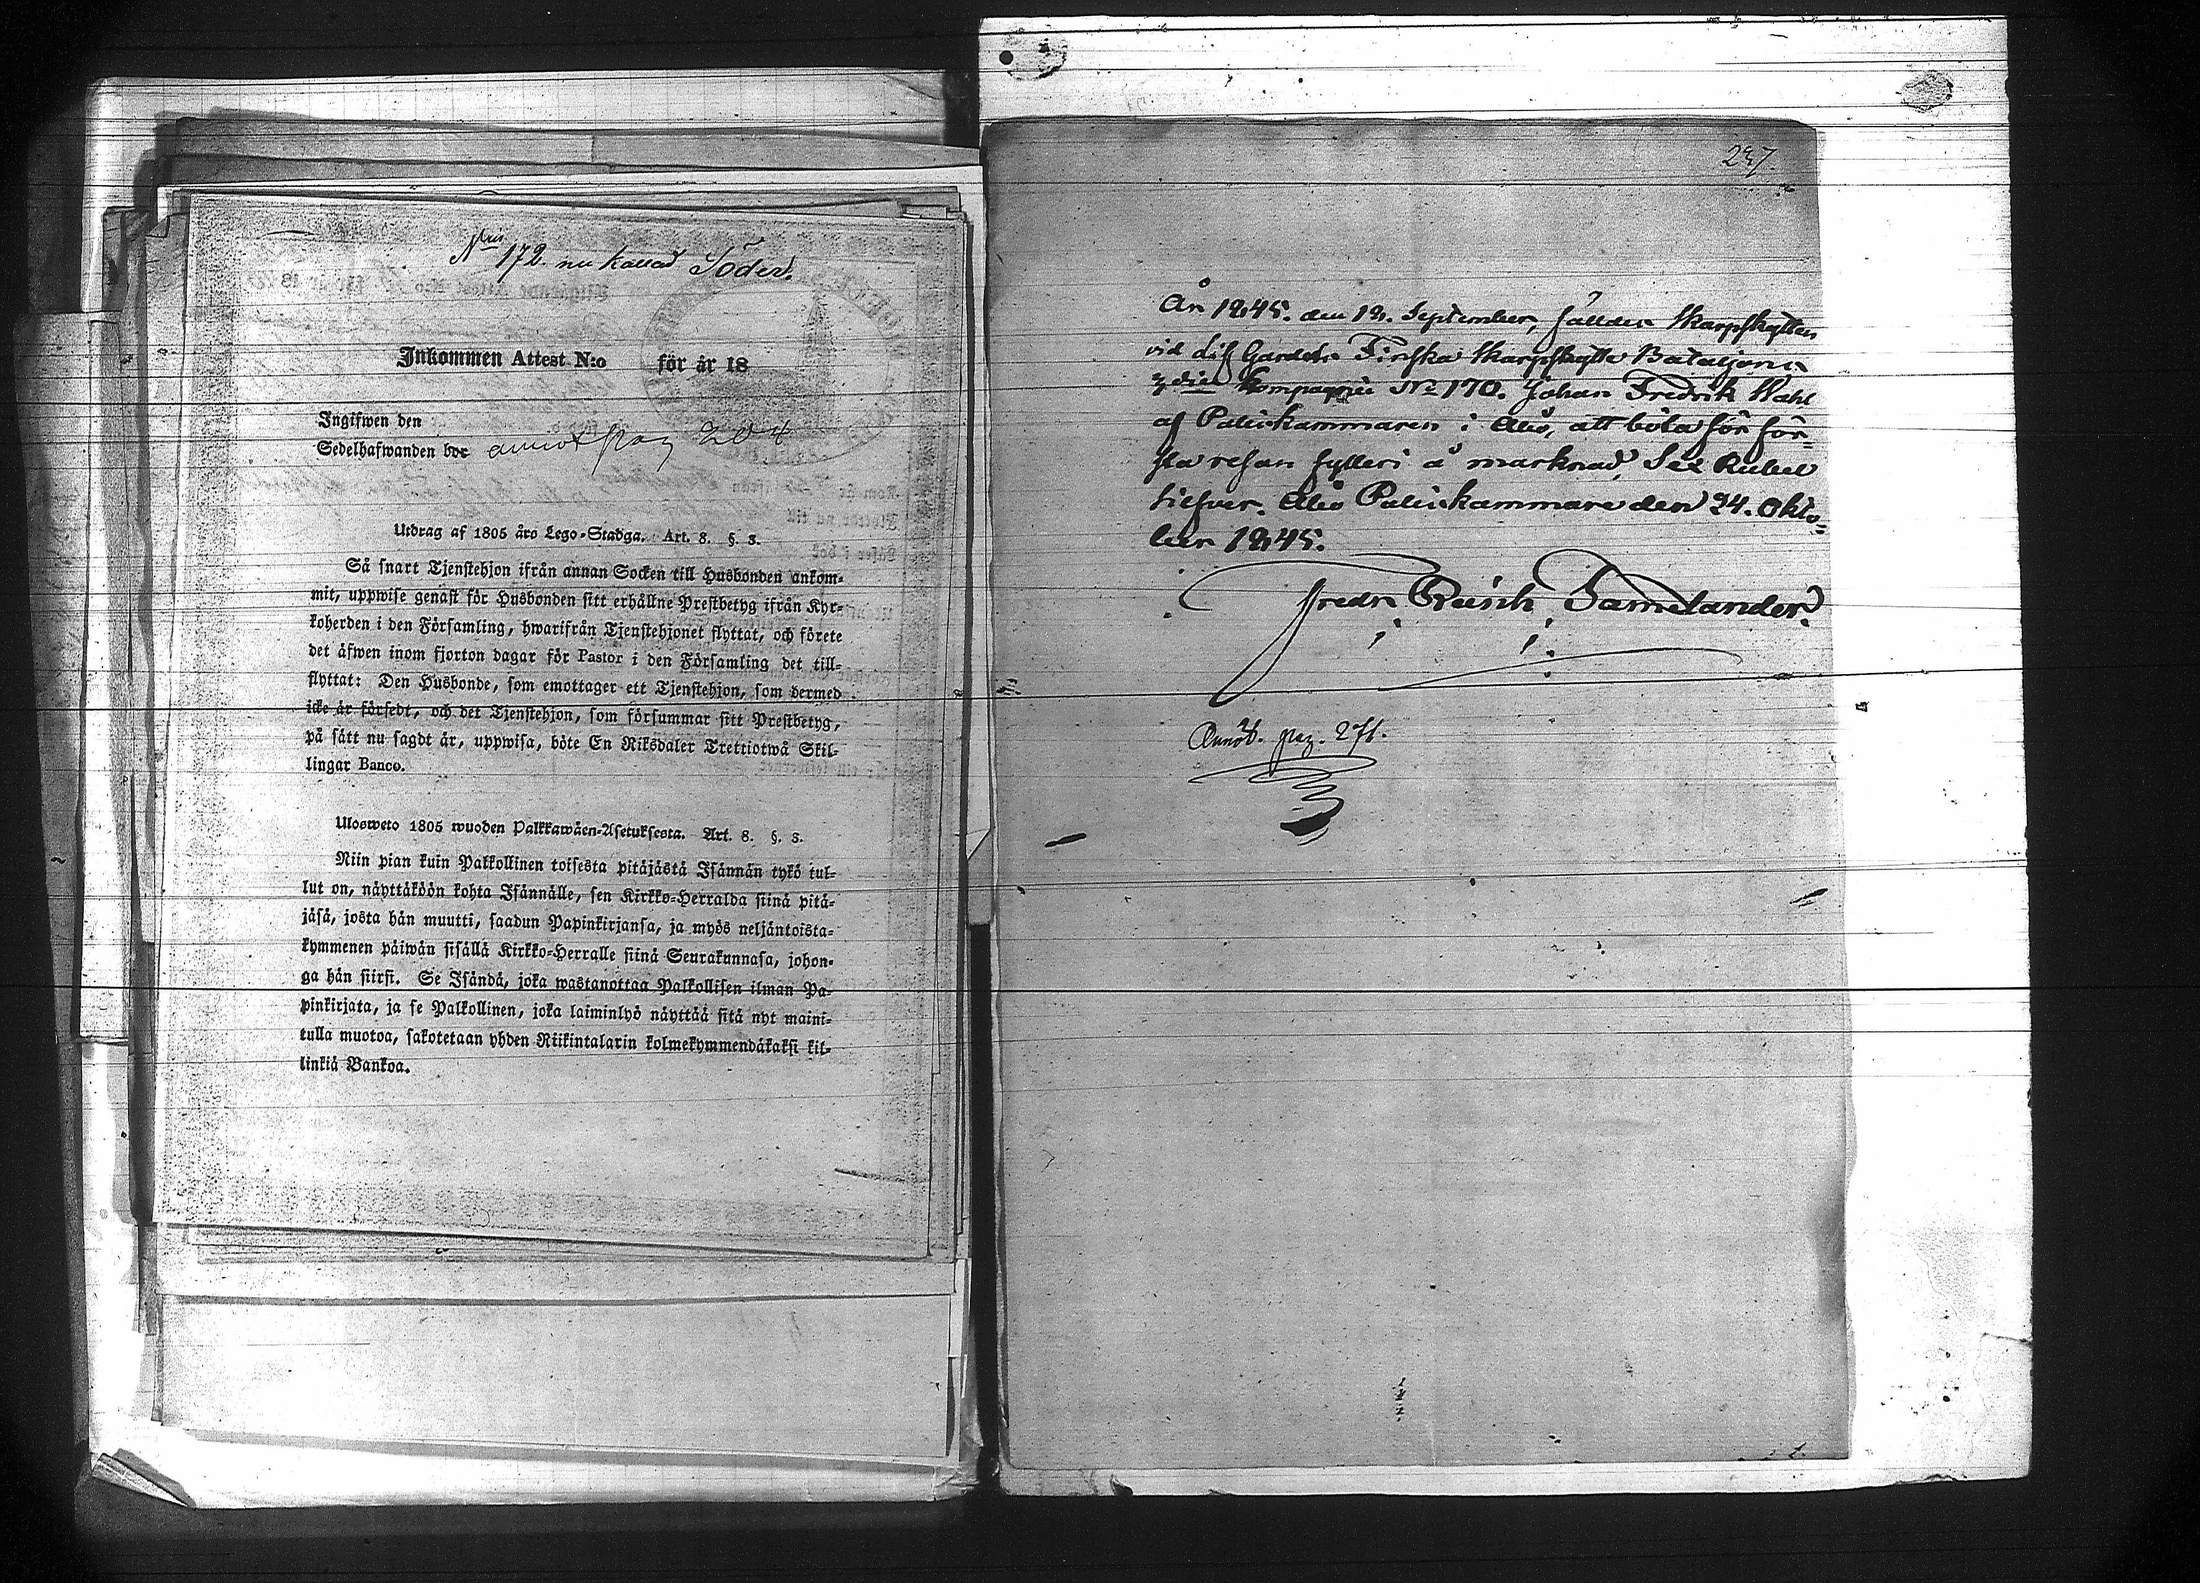 N:ris 172. nu kallad Söder.
Inkommen Attest N:o för år 18
Ingifwen den
Sedelhafwanden bor annot pag 204
Utdrag af 1805 års Lego-Stadga. Art. 8. §. 3.
Så snart Tjenstehjon ifrån annan Socken till Husbonden ankom-
mit, uppwise genast för Husbonden sitt erhållne Prestbetyg ifrån Kyr-
koherden i den Församling, hwarifrån Tjenstehjonet flyttat, och förete
det äfwen inom fjorton dagar för Pastor i den Församling det till-
flyttat: Den Husbonde, som emottager ett Tjenstehjon, som dermed
icke är försedt, och det Tjenstehjon, som försummar sitt Prestbetyg,
på sätt nu sagdt är, uppwisa, böte En Riksdaler Trettiotwå Skil-
lingar Banco.
Ulosweto 1805 wuoden Palkkawäen-Asetuksesta. Art. 8. §. 3.
Niin pian kuin Palkollinen toisesta pitäjästä Isännän tykö tul-
lut on, näyttäköön kohta Isännälle, sen Kirkko-Herralda siinä pitä-
jäsä, josta hän muutti, saadun Papinkirjansa, ja myös neljäntoista-
kymmenen päiwän sisällä Kirkko-Herralle siinä Seurakunnasa, johon-
ga hän siirsi. Se Isändä, joka wastanottaa Palkollisen ilman Pa-
pinkirjata, ja se Palkollinen, joka laiminlyö näyttää sitä nyt maini-
tulla muotoa, sakotetaan yhden Riikintalarin kolmekymmendäkaksi kil-
linkiä Bankoa.
237.
År 1845. den 18. September, fälldes Skarpskytten
vid Lif Gardets Finska Skarpskytte Bataljons
Kompagnie No 170. Johan Fredrik Wahl
af Poliskammaren i Åbo, att böta för för-
sta resan fylleri å marknad, Sex Rubel
silfver. Åbo Poliskammare den 24. Okto-
ber 1845.
Fredr.
Annot. pag. 271.